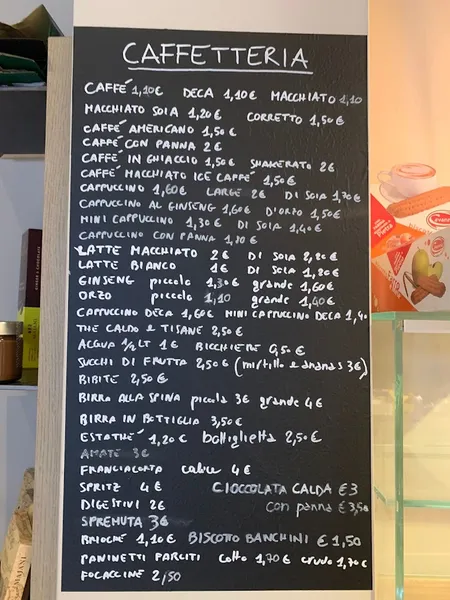 CAFFETTERIA
CAFFÉ 1,10€ DECA 1,10€ MACCHIATO 1,10
MACCHIATO SOIA 1,20€ CORRETTO 1,50€
CAFFÉ AMERICANO 1,50€
CAFFÉ CON PANNA 2€
CAFFÉ IN GHIACCIO 1,50€ SHAKERATO 2€
CAFFÉ MACCHIATO ICE CAFFÉ 1,50€
CAPPUCCINO 1,60€ LARGE 2€ DI SOIA 1,70€
CAPPUCCINO AL GINSENG 1,60€ D'ORZO 1,50€
MINI CAPPUCCINO 1,30€ DI SOIA 1,40€
CAPPUCCINO CON PANNA
LATTE MACCHIATO 2€ DI SOIA 2,20€
LATTE BIANCO 1€ DI SOIA 1,20€
GINSENG piccolo 1,30€ grande 1,60€
ORZO piccolo 1,10 grande 1,40€
CAPPUCCINO DECA 1,60€ MINI CAPPUCCINO DECA 1,40
THE CALDO e TISANE 2,50€
ACQUA 1/2 LT 1€ BICCHIERE 0,50€
SUCCHI DI FRUTTA 2,50€ (mirtillo e ananas 3€)
BIBITE 2,50€
BIRRA ALLA SPINA piccola 3€ grande 4€
BIRRA IN BOTTIGLIA 3,50€
ESTATHÉ 1,20€ bottiglietta 2,50€
AMARI 3€
FRANCIACORTA calice 4€
SPRITZ 4€ CIOCCOLATA CALDA €3
DIGESTIVI 2€ con panna €3,50
SPREMUTA 3€
BRIOCHE 1,10€ BISCOTTO BANCHINI €1,50
PANINETTI FARCITI cotto 1,70€ crudo 1,70€
FOCACCINE 2,50